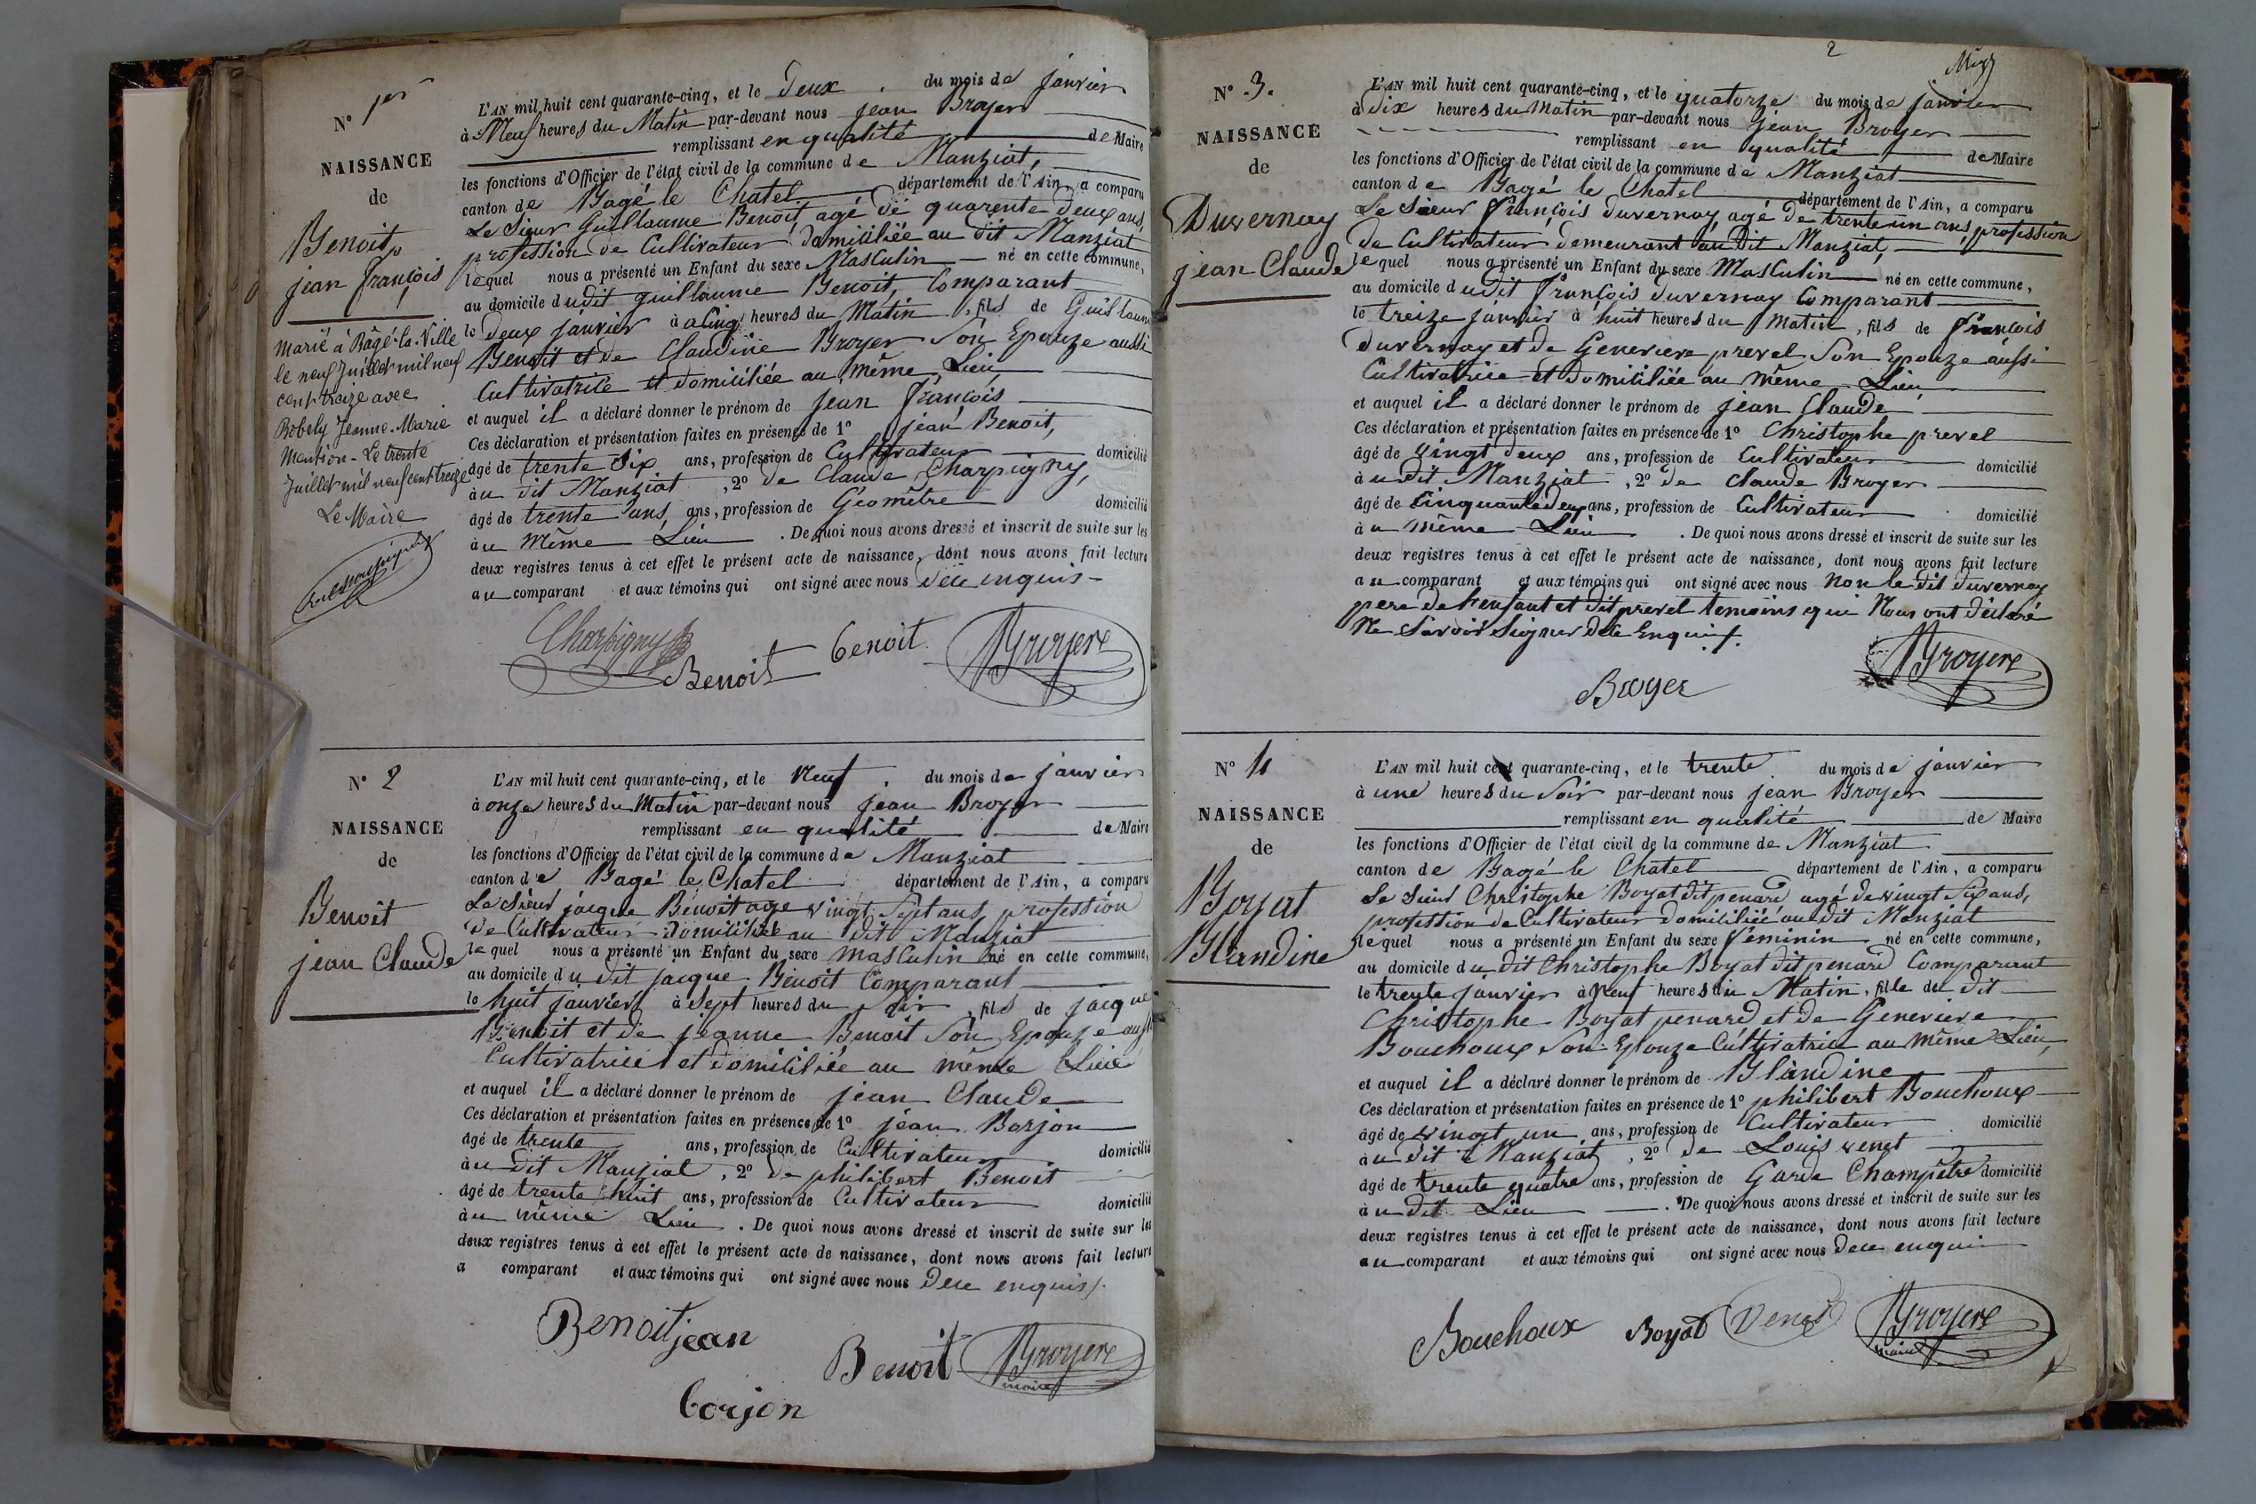 N° 1er
NAISSANCE
de
Benoit
jean françois
Marié à Bâgé-la-Ville
le neuf juillet mil neuf
cent treize avec
Jeanne-Marie
Mention - Le trente
Juillet mil neuf cent treize
Le Maire
L'AN mil huit cent quarante-cinq, et le deux du mois de janvier
à Neuf heures du Matin par-devant nous jean Broyer
remplissant en qualité de Maire
les fonctions d'Officier de l'état civil de la commune de Manziat,
canton de Bagé le Chatel département de l'Ain, a comparu
Le Sieur Guillaume Benoit, agé de quarente deux ans,
profession de Cultivateur domiciliée au dit Manziat
lequel nous a présenté un Enfant du sexe Masculin né en cette commune,
au domicile dudit guillaume Benoit, Comparant
le deux janvier à cinq heures du Matin, fils de Guillaume
Benoit et de Claudine Broyer Son Epouze aussi
Cultivatrice et domiciliée au même Lieu,
et auquel il a déclaré donner le prénom de jean françois
Ces déclaration et présentation faites en présence de 1° jean Benoit,
âgé de trente six ans, profession de Cultivateur domicilié
au dit Manziat, 2° de Claude Charpigny,
âgé de trente ans, ans, profession de Géomêtre domicilié
au même Lieu. De quoi nous avons dressé et inscrit de suite sur les
deux registres tenus à cet effet le présent acte de naissance, dont nous avons fait lecture
au comparant et aux témoins qui ont signé avec nous dece enquis
Charpigny
Benoit
benoit
Broyere
N° 2
NAISSANCE
de
Benoit
jean Claude
L'AN mil huit cent quarante-cinq, et le Neuf du mois de janvier
à onze heures du Matin par-devant nous jean Broyer
remplissant en qualité de Maire
les fonctions d'Officier de l'état civil de la commune de Manziat
canton de Bagé le Chatel département de l'Ain, a comparu
Le Sieur jacque Benoit age vingt Sept ans profession
de Cultivateur domiciliée au dit Manziat
lequel nous a présenté un Enfant du sexe masculin né en cette commune,
au domicile du dit jacque Benoit Comparant
le huit janvier à Sept heures du Soir, fils de jacque
Benoit et de jeanne Benoit Son Epouze aussi
Cultivatrice et domiciliée au même Lieu
et auquel il a déclaré donner le prénom de jean Claude
Ces déclaration et présentation faites en présence de 1° jean Borjon
âgé de trente ans, profession de Cultivateur domicilié
au dit Manziat, 2° de philibert Benoit
âgé de trente huit ans, profession de Cultivateur domicilié
au même Lieu. De quoi nous avons dressé et inscrit de suite sur les
deux registres tenus à cet effet le présent acte de naissance, dont nous avons fait lecture
a comparant et aux témoins qui ont signé avec nous dece enquis
Benoit jean
Benoit
Broyere
maire
borjon
2
N° 3.
NAISSANCE
de
Duvernay
jean Claude
L'AN mil huit cent quarante-cinq, et le quatorze du mois de janvier
à dix heures du Matin par-devant nous jean Broyer
remplissant en qualité de Maire
les fonctions d'Officier de l'état civil de la commune de Manziat
canton de Bagé le Chatel département de l'Ain, a comparu
Le Sieur françois duvernay agé de trente un ans, profession
de Cultivateur demeurant au dit Manziat,
lequel nous a présenté un Enfant du sexe Masculin né en cette commune,
au domicile dudit françois duvernay Comparant
le treize janvier à huit heures du matin, fils de françois
duvernay et de Genevieve prevel Son Epouze aussi
Cultivatrice et domiciliée au même Lieu,
et auquel il a déclaré donner le prénom de jean Claude
Ces déclaration et présentation faites en présence de 1° Christophe prevel
âgé de vingt deux ans, profession de Cultivateur domicilié
audit Manziat, 2° de Claude Broyer
âgé de Cinquante deux ans, profession de Cultivateur domicilié
au même Lieu. De quoi nous avons dressé et inscrit de suite sur les
deux registres tenus à cet effet le présent acte de naissance, dont nous avons fait lecture
au comparant et aux témoins qui ont signé avec nous non le dit duvernay
pere de l'enfant et dit prevel temoins qui Nous ont déclaré
Ne Savoir Signer dece Enquis.
Broyer
Broyere
N° 4
NAISSANCE
de
Boyat
Blandine
L'AN mil huit cent quarante-cinq, et le trente du mois de janvier
à une heures du Soir par-devant nous jean Broyer
remplissant en qualité de Maire
les fonctions d'Officier de l'état civil de la commune de Manziat
canton de Bagé le Chatel département de l'Ain, a comparu
Le Sieur Christophe Boyat dit penard agé de vingt Six ans,
profession de Cultivateur domiciliée au dit Manziat
lequel nous a présenté un Enfant du sexe féminin né en cette commune,
au domicile du dit Christophe Boyat dit penard Comparant
le trente janvier à Neuf heures du Matin, fille du dit
Christophe Boyat penard et de Genevieve
Bouchoux Son Epouze Cultivatrice au même Lieu,
et auquel il a déclaré donner le prénom de Blandine
Ces déclaration et présentation faites en présence de 1° philibert Bouchoux
âgé de vingt un ans, profession de Cultivateur domicilié
au dit Manziat, 2° de Louis venet
âgé de trente quatre ans, profession de Garde Champêtre domicilié
au dit Lieu. De quoi nous avons dressé et inscrit de suite sur les
deux registres tenus à cet effet le présent acte de naissance, dont nous avons fait lecture
au comparant et aux témoins qui ont signé avec nous dece enquis
Bouchoux
Boyat
Venet
Broyere
maire